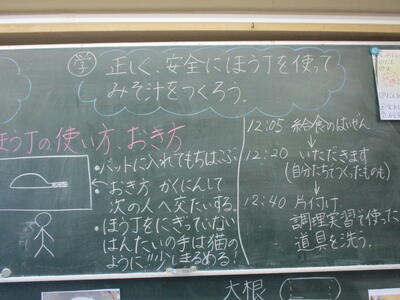 学 正しく、安全にほう丁を使って
みそ汁をつくろう。
ほう丁の使い方、おき方
・バットに入れてもちはこぶ
おき方 かくにんして
次の人へ交たいする。
・ほう丁をにぎっていない
はんたいの手は猫の
ように!!少しまるめる!
12:05 給食のはいぜん
12:20 いただきます
(自分たちでつくったものも)
12:40 片付け、
調理実習で使った
道具を洗う。
大根